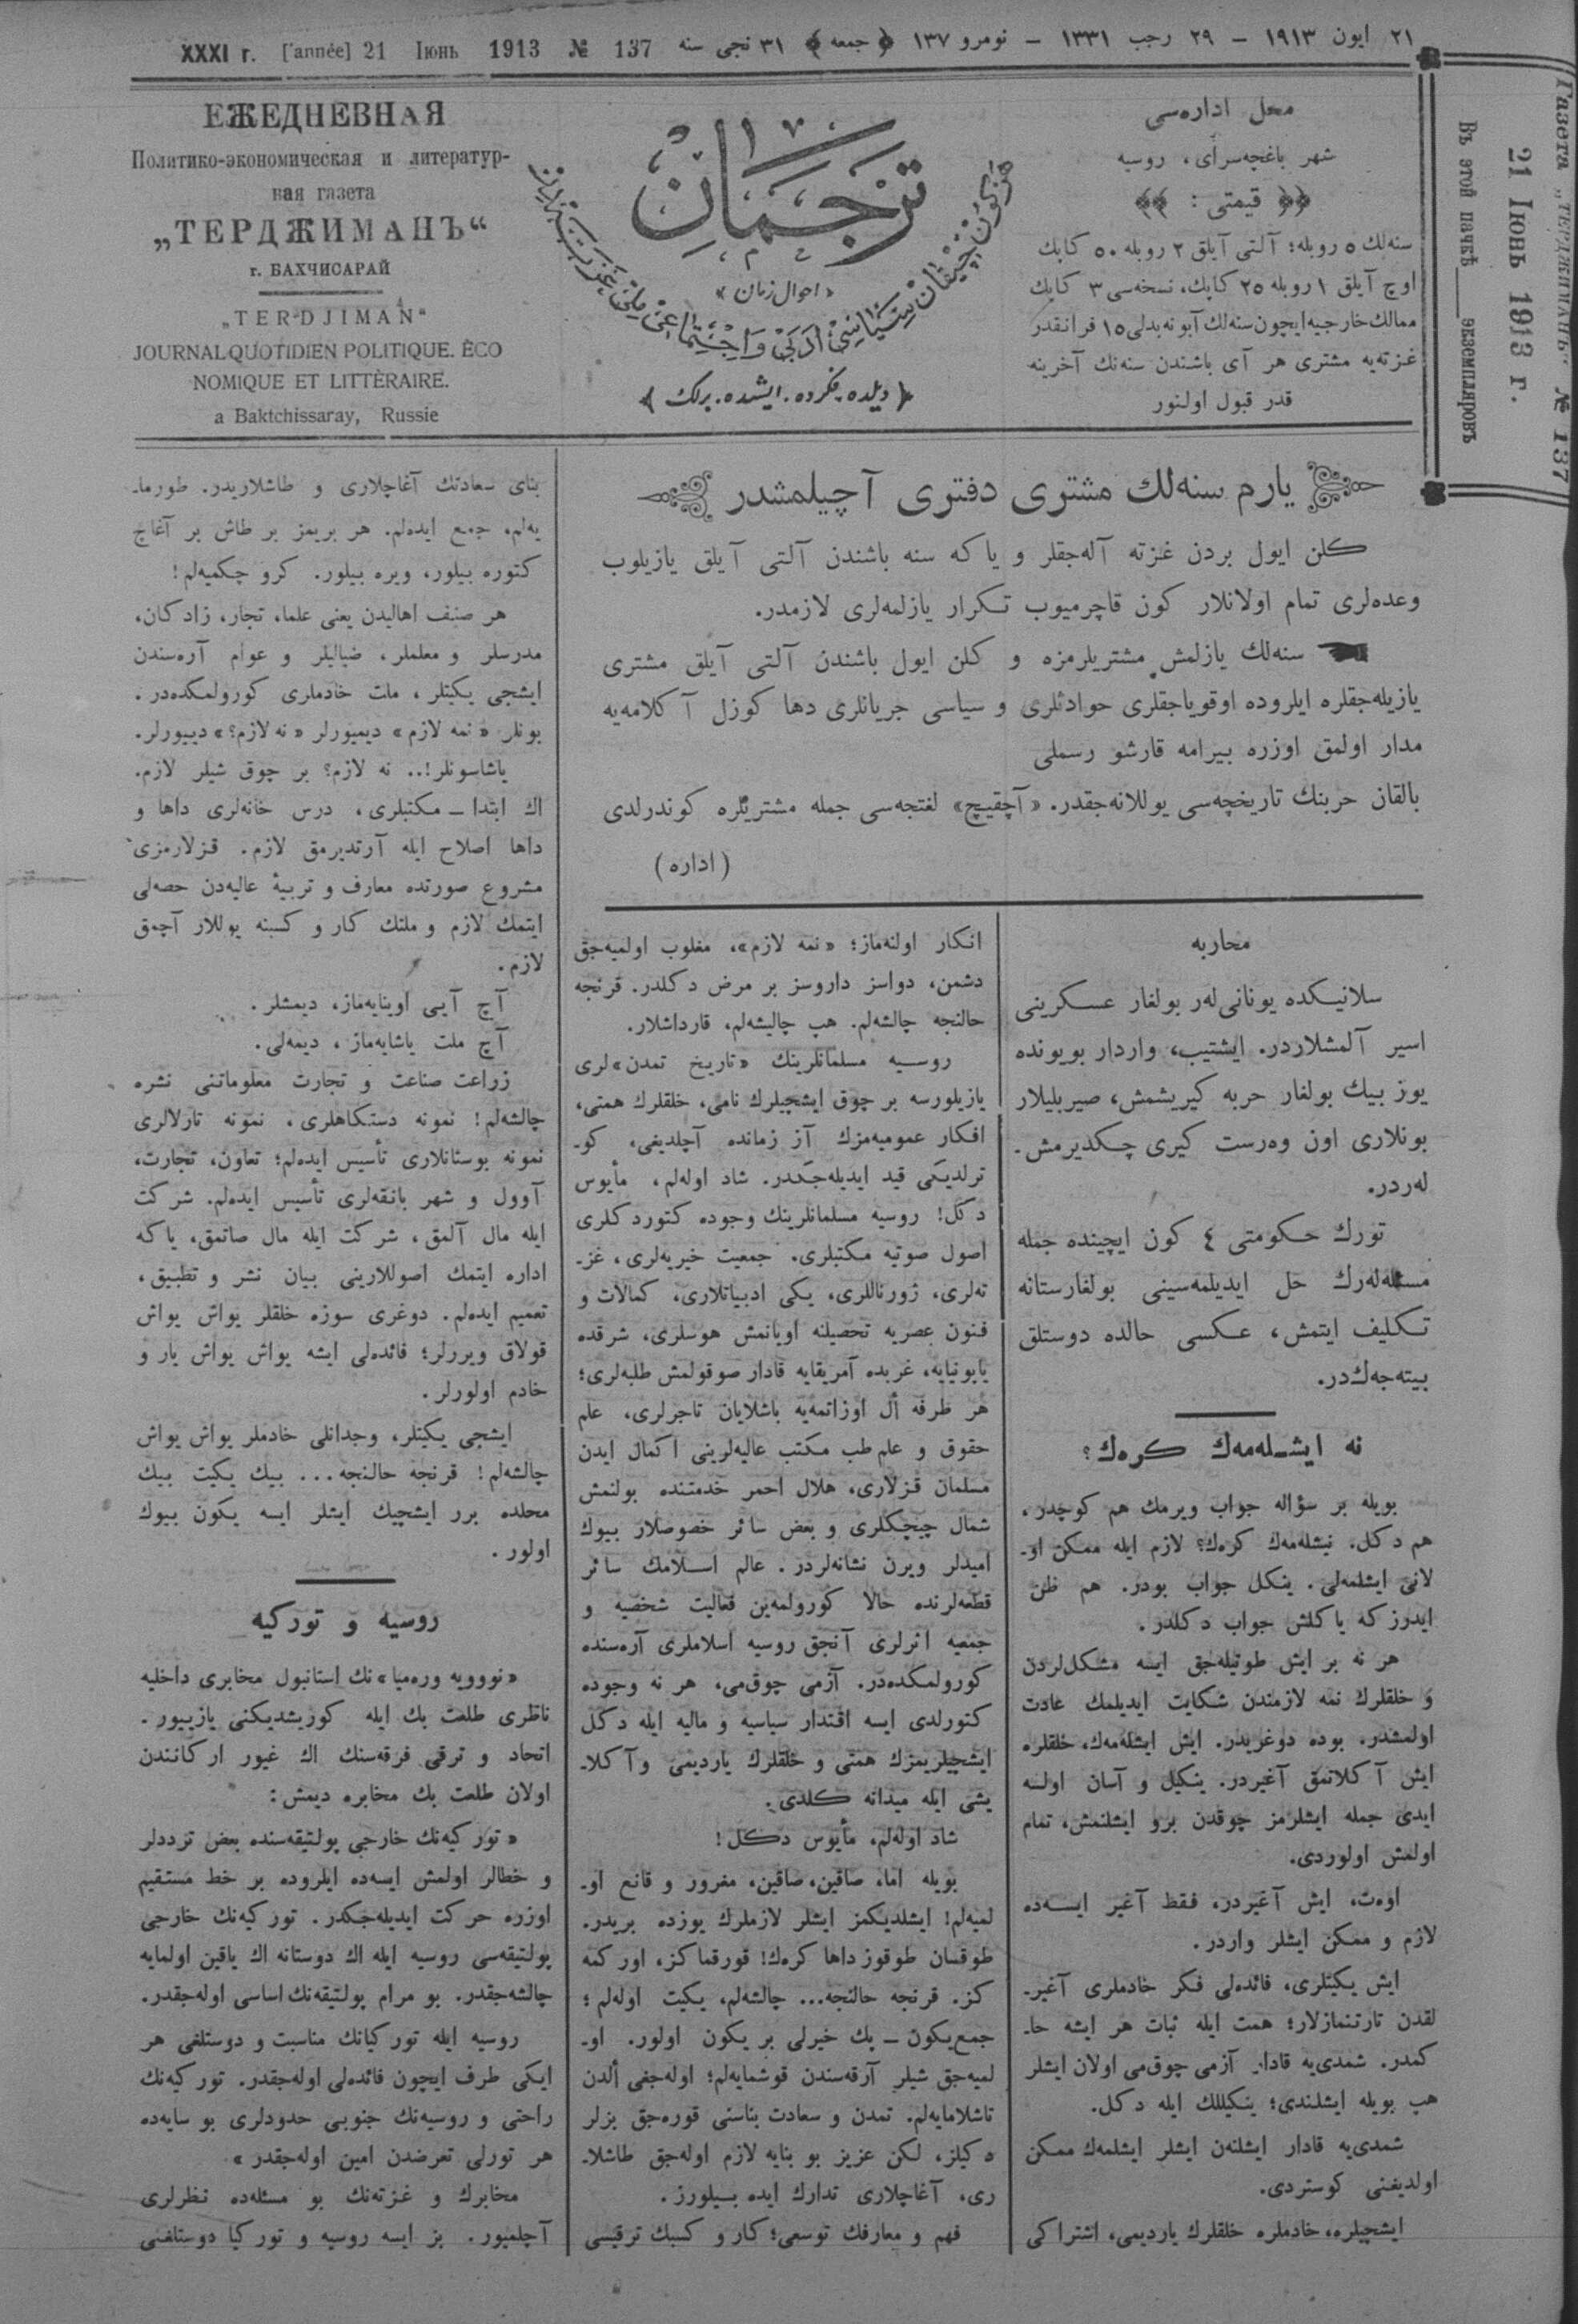 ٢١ ایون ١٩١٣ — ٢٩ رجب ١٣٣١ — نومرو ١٣٧ ﴿ جمعه ﴾ ٣١ نجی سنه
XXXI г. [année] 21 Іюнь 1913 № 137
ЕЖЕДНЕВНАЯ
Политико-экономическая и литератур-
ная газета
„ТЕРДЖИМАНЪ“
г. БАХЧИСАРАЙ
„TERDJIMAN“
JOURNAL QUOTIDIEN POLITIQUE. ÉCO
NOMIQUE ET LITTÈRAIRE.
a Baktchissaray, Russie
ترجمان
« احوال زمان »
﴿ دیلده، فکرده، ایشده، برلك ﴾
محل اداره‌سی
شهر باغچه‌سرای، روسیه
﴿﴿ قیمتی : ﴾﴾
سنه‌لك ٥ روبله؛ آلتی آیلق ٢ روبله ٥٠ كاپك
اوچ آیلق ١ روبله ٢٥ كاپك، نسخه‌سی ٣ كاپك
ممالك خارجیه ایچون سنه‌لك آبونه بدلی ١٥ فرانقدر
غزته‌یه مشتری هر آی باشندن سنه‌نك آخرینه
قدر قبول اولنور
Газета „ТЕРДЖИМАНЪ“ № 137
21 Іюнь 1913 г.
Въ этой пачкѣ ____ экземпляровъ
یارم سنه‌لك مشتری دفتری آچیلمشدر
كلن ایول بردن غزته آله‌جقلر و یا كه سنه باشندن آلتی آیلق یازیلوب
وعده‌لری تمام اولانلار كون قاچرمیوب تكرار یازلمه‌لری لازمدر.
سنه‌لك یازلمش مشتریلرمزه و كلن ایول باشندن آلتی آیلق مشتری
یازیله‌جقلره ایلروده اوقویاجقلری حوادثلری و سیاسی جریانلری دها كوزل آكلامه‌یه
مدار اولمق اوزره بیرامه قارشو رسملی
بالقان حربنك تاریخچه‌سی یوللانه‌جقدر. «آچقیچ» لغتجه‌سی جمله مشتریلره كوندرلدی
(اداره)
محاربه
سلانیكده یونانی‌لەر بولغار عسكرینی
اسیر آلمشلاردر. ایشتیب، واردار بویونده
یوز بیك بولغار حربه كیریشمش، صیربلیلار
بونلاری اون وەرست كیری چكدیرمش-
لەردر.
تورك حكومتی ٤ كون ایچینده جمله
مسئله‌لەرك حل ایدیلمه‌سینی بولغارستانه
تكلیف ایتمش، عكسی حالده دوستلق
بیته‌جەك‌در.
نه ایشـله‌مەك كرەك؟
بویله بر سؤاله جواب ویرمك هم كوچدر،
هم دكل. نیشله‌مەك كرەك؟ لازم ایله ممكن او-
لانی ایشلمه‌لی. ینكل جواب بودر. هم ظن
ایدرز كه یاكلش جواب دكلدر.
هر نه بر ایش طوتیله‌جق ایسه مشكل‌لردن
و خلقلرك نمه لازمندن شكایت ایدیلمك عادت
اولمشدر. بوده دوغریدر. ایش ایشله‌مەك، خلقلره
ایش آكلاتمق آغیردر. ینكیل و آسان اولـه
ایدی جمله ایشلرمز چوقدن برو ایشلنمش، تمام
اولمش اولوردی.
اوەت، ایش آغیردر، فقط آغیر ایسـه‌ده
لازم و ممكن ایشلر واردر.
ایش یكیتلری، فائده‌لی فكر خادملری آغیر-
لقدن تارتنمازلار؛ همت ایله ثبات هر ایشه حا-
كمدر. شمدی‌یه قادار آزمی چوق‌می اولان ایشلر
هپ بویله ایشلندی؛ ینكیللك ایله دكل.
شمدی‌یه قادار ایشلنەن ایشلر ایشلمەك ممكن
اولدیغنی كوستردی.
ایشچیلره، خادملره خلقلرك یاردیمی، اشتراكی
انكار اولنه‌ماز؛ «نمه لازم»، مغلوب اولمیه‌جق
دشمن، دواسز داروسز بر مرض دكلدر. قرنجه
حالنجه چالشه‌لم. هپ چالیشه‌لم، قارداشلار.
روسـیه مسلمانلرینك «تاریخ تمدن»لری
یازیلورسه بر چوق ایشچیلرك نامی، خلقلرك همتی،
افكار عمومیه‌مزك آز زمانده آچلدیغی، كو-
ترلدیكی قید ایدیله‌جكدر. شاد اوله‌لم، مأیوس
دكل! روسیه مسلمانلرینك وجوده كتوردكلری
اصول صوتیه مكتبلری. جمعیت خیریه‌لری، غز-
ته‌لری، ژورناللری، یكی ادبیاتلاری، كمالات و
فنون عصریه تحصیلنه اویانمش هوسلری، شرقده
یابونیایه، غربده آمریقایه قادار صوقولمش طلبه‌لری؛
هر طرفه أل اوزاتمه‌یه باشلایان تاجرلری، علم
حقوق و علم طب مكتب عالیه‌لرینی اكمال ایدن
مسلمان قزلاری، هلال احمر خدمتنده بولنمش
شمال چیچكلری و بعض سائر خصوصلار بیوك
امیدلر ویرن نشانه‌لردر. عالم اسـلامك سائر
قطعه‌لرنده حالا كورولمه‌ین فعالیت شخصیه و
جمعیه اثرلری آنجق روسیه اسلاملری آره‌سنده
كورولمكده‌در. آزمی چوق‌می، هر نه وجوده
كتورلدی ایسه اقتدار سیاسیه و مالیه ایله دكل
ایشچیلریمزك همتی و خلقلرك یاردیمی و آكلا-
یشی ایله میدانه كلدی.
شاد اوله‌لم، مأیوس دكل!
بویله اما، صاقین، صاقین، مغرور و قانع او-
لمیه‌لم! ایشلدیكمز ایشلر لازملرك یوزده بریدر.
طوقسان طوقوز داها كرەك! قورقماكز، اوركمه
كز. قرنجه حالنجه... چالشه‌لم، یكیت اوله‌لم؛
جمع‌یكون — یك خیرلی بر یكون اولور. او-
لمیه‌جق شیلر آرقه‌سندن قوشمایه‌لم؛ اوله‌جغی ألدن
تاشلامایه‌لم. تمدن و سعادت بناسنی قوره‌جق بزلر
دكیلز، لكن عزیز بو بنایه لازم اوله‌جق طاشلا-
ری، آغاچلاری تدارك ایده بـیلورز.
فهم و معارفك توسعی؛ كار و كسبك ترقیسی
بنای سعادتك آغاچلاری و طاشلاریدر. طورما-
یه‌لم، جمع ایده‌لم. هر بریمز بر طاش بر آغاچ
كتوره بیلور، ویره بیلور. كرو چكمیه‌لم!
هر صنف اهالیدن یعنی علما، تجار، زادكان،
مدرسلر و معلملر، ضیالیلر و عوام آره‌سندن
ایشجی یكیتلر، ملت خادملری كورولمكده‌در.
بونلر «نمه لازم» دیمیورلر «نه لازم؟» دییورلر.
یاشاسونلر!.. نه لازم؟ بر چوق شیلر لازم.
اك ابتدا — مكتبلری، درس خانه‌لری داها و
داها اصلاح ایله آرتدیرمق لازم. قزلارمزی
مشروع صورتده معارف و تربیۀ عالیه‌دن حصه‌لی
ایتمك لازم و ملتك كار و كسبنه یوللار آچمق
لازم.
آچ آیی اوینایه‌ماز، دیمشلر.
آچ ملت یاشایه‌ماز، دیمه‌لی.
زراعت صناعت و تجارت معلوماتنی نشره
چالشه‌لم! نمونه دستكاهلری، نمونه تارلالری
نمونه بوستانلاری تأسیس ایده‌لم؛ تعاون، تجارت،
آوول و شهر بانقه‌لری تأسیس ایده‌لم. شركت
ایله مال آلمق، شركت ایله مال صاتمق، یا كه
اداره ایتمك اصوللارینی بیان نشر و تطبیق،
تعمیم ایده‌لم. دوغری سوزه خلقلر یواش یواش
قولاق ویررلر؛ فائده‌لی ایشه یواش یواش یار و
خادم اولورلر.
ایشجی یكیتلر، وجدانلی خادملر یواش یواش
چالشه‌لم! قرنجه حالنجه... بیك یكیت بیك
محلده برر ایشچیك ایشلر ایسه یكون بیوك
اولور.
روسیه و توركیه
«نووویه ورەمیا»نك استانبول مخابری داخلیه
ناظری طلعت بك ایله كوریشدیكنی یازییور.
اتحاد و ترقی فرقه‌سنك اك غیور اركانندن
اولان طلعت بك مخابره دیمش:
«توركیه‌نك خارجی پولتیقه‌سنده بعض ترددلر
و خطالر اولمش ایسه‌ده ایلروده بر خط مستقیم
اوزره حركت ایدیله‌جكدر. توركیه‌نك خارجی
پولتیقه‌سی روسیه ایله اك دوستانه اك یاقین اولمایه
چالشه‌جقدر. بو مرام پولتیقه‌نك اساسی اوله‌جقدر.
روسیه ایله توركیانك مناسبت و دوستلغی هر
ایكی طرف ایچون فائده‌لی اوله‌جقدر. توركیه‌نك
راحتی و روسیه‌نك جنوبی حدودلری بو سایه‌ده
هر تورلی تعرضدن امین اوله‌جقدر»
مخابرك و غزته‌نك بو مسئله‌ده نظرلری
آچلمیور. بز ایسه روسیه و توركیا دوستلغنی